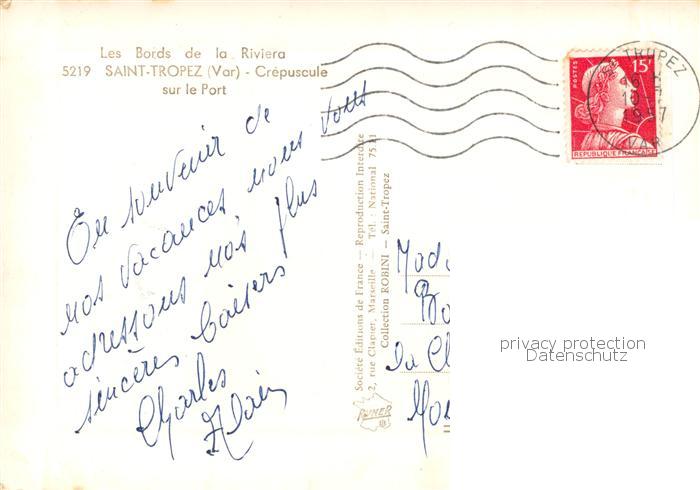 Les Bords de la Riviera
5219 SAINT-TROPEZ (Var) - Crépuscule
sur le Port
En souvenir de
nos vacances nous vous
adressons nos plus
sincères baisers
Charles
Alain
Société Éditions de France — Reproduction Interdite
2, rue Clapier, Marseille — Tél. : National 75
Collection ROBINI — Saint-Tropez
RYNER
POSTES
15F
REPUBLIQUE FRANÇAISE
TROPEZ
VAR
Mad
du Cl
privacy protection
Datenschutz